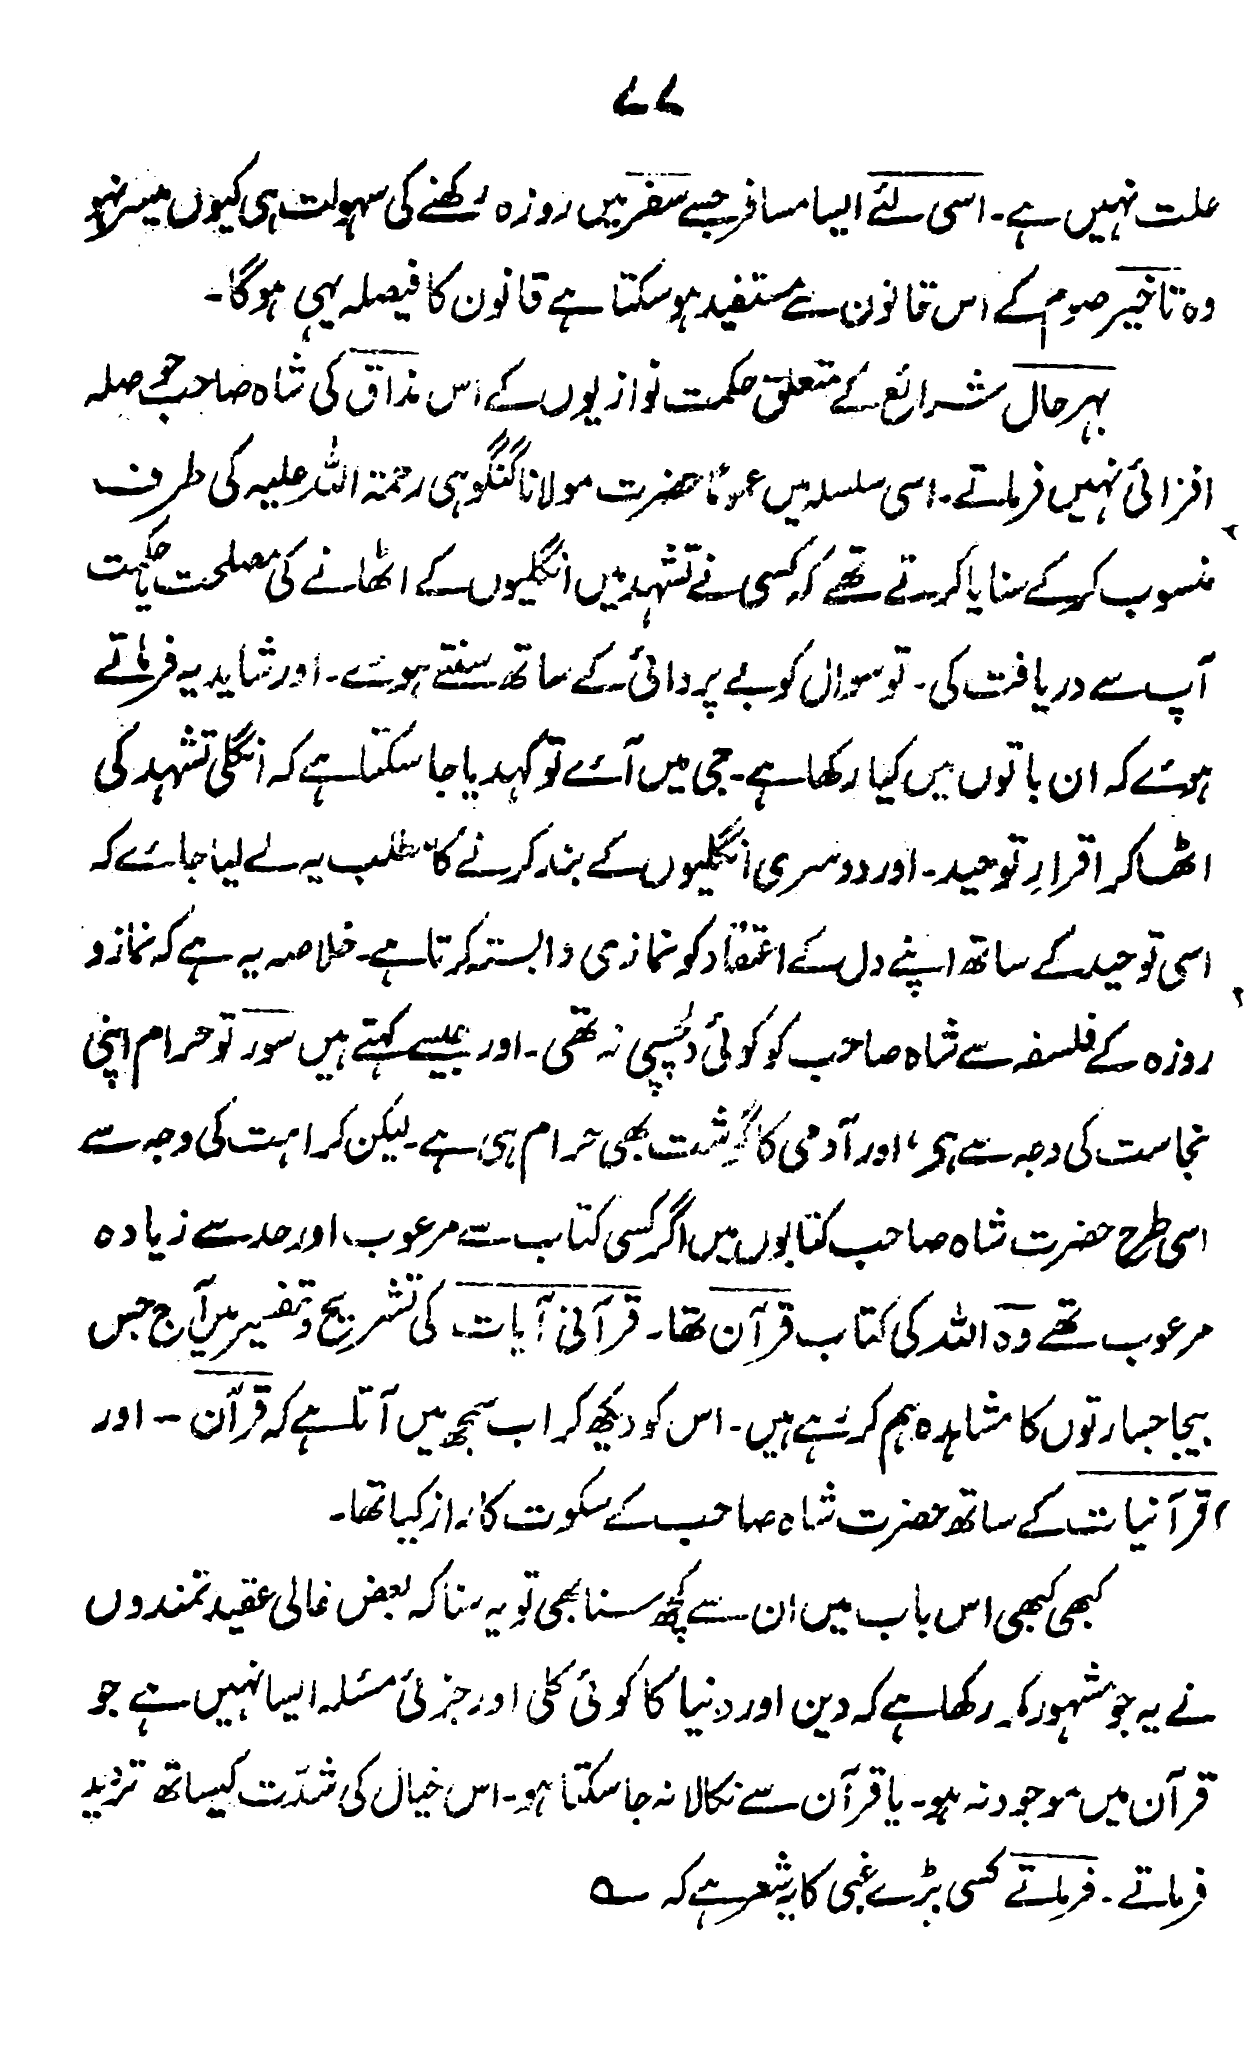 ۷۷
علت نہیں ہے۔ اسی لئے ایسا مسافر جسے سفر میں روزہ رکھنے کی سہولت ہی کیوں میسر نہو
وہ تاخیر صوم کے اس قانون سے مستفید ہو سکتا ہے قانون کا فیصلہ یہی ہوگا۔
بہرحال شرائع کے متعلق حکمت نوازیوں کے اس مذاق کی شاہ صاحب حوصلہ
افزائی نہیں فرماتے۔ اسی سلسلہ میں عموماً حضرت مولانا گنگوہی رحمۃ اللہ علیہ کی طرف
منسوب کرکے سنایا کرتے تھے کہ کسی نے تشہد میں انگلیوں کے اٹھانے کی مصلحت یا حکمت
آپ سے دریافت کی۔ تو سوال کو بے پروائی کے ساتھ سنتے ہوئے۔ اور شاید یہ فرماتے
ہوئے کہ ان باتوں میں کیا رکھا ہے۔ جی میں آئے تو کہدیا جا سکتا ہے کہ انگلی تشہد کی
اٹھا کر اقرارِ توحید۔ اور دوسری انگلیوں کے بند کرنے کا مطلب یہ لے لیا جائے کہ
اسی توحید کے ساتھ اپنے دل کے اعتقاد کو نمازی وابستہ کرتا ہے۔ خلاصہ یہ ہے کہ نماز و
روزہ کے فلسفہ سے شاہ صاحب کو کوئی دلچسپی نہ تھی۔ اور جیسے کہتے ہیں سور تو حرام اپنی
نجاست کی وجہ سے ہے، اور آدمی کا گوشت بھی حرام ہی ہے۔ لیکن کرامت کی وجہ سے
اسی طرح حضرت شاہ صاحب کتابوں میں اگر کسی کتاب سے مرعوب اور حد سے زیادہ
مرعوب تھے وہ اللہ کی کتاب قرآن تھا۔ قرآنی آیات کی تشریح و تفسیر میں آج جس
بیجا جسارتوں کا مشاہدہ ہم کر رہے ہیں۔ اس کو دیکھ کر اب سمجھ میں آتا ہے کہ قرآن – اور
قرآنیات کے ساتھ حضرت شاہ صاحب کے سکوت کا راز کیا تھا۔
کبھی کبھی اس باب میں ان سے کچھ سنا بھی تو یہ سنا کہ بعض غالی عقیدتمندوں
نے یہ جو مشہور کر رکھا ہے کہ دین اور دنیا کا کوئی کلی اور جزئی مسئلہ ایسا نہیں ہے جو
قرآن میں موجود نہ ہو۔ یا قرآن سے نکالا نہ جا سکتا ہو۔ اس خیال کی شدّت کیساتھ تردید
فرماتے۔ فرماتے کسی بڑے غبی کا یہ شعر ہے کہ ؎